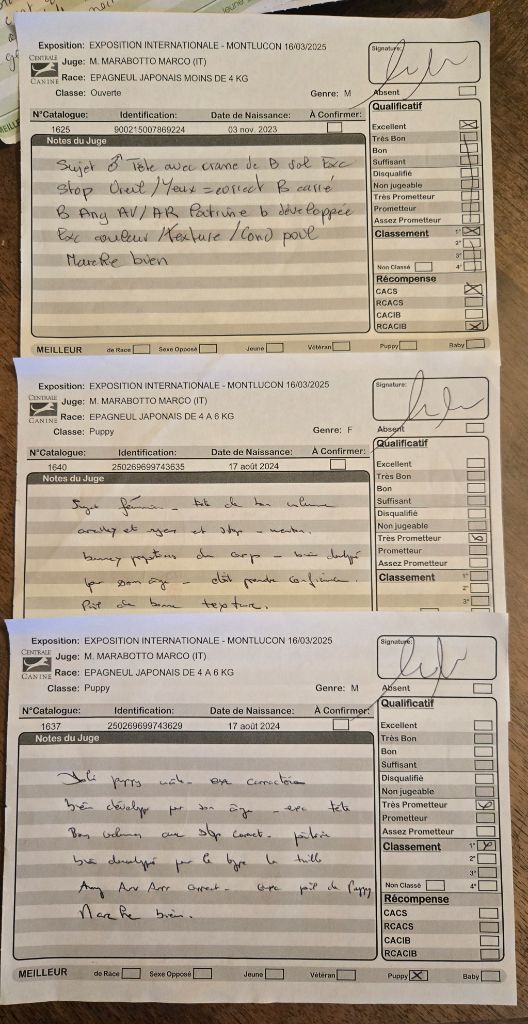 Exposition: EXPOSITION INTERNATIONALE - MONTLUCON 16/03/2025
Signature:
CENTRALE CANINE
Juge: M. MARABOTTO MARCO (IT)
Race: EPAGNEUL JAPONAIS MOINS DE 4 KG
Classe: Ouverte
Genre: M
Absent
N°Catalogue: Identification: Date de Naissance: À Confirmer:
1625 900215007869224 03 nov. 2023
Notes du Juge
Sujet ♂ Tête avec crane de B vol Exc
Stop Oreil / Yeux = correct B carré
B Ang AV/AR Poitrine b développée
Exc couleur / texture / Cond poil
Marche bien
Qualificatif
Excellent
Très Bon
Bon
Suffisant
Disqualifié
Non jugeable
Très Prometteur
Prometteur
Assez Prometteur
Classement 1°
2°
3°
Non Classé 4°
Récompense
CACS
RCACS
CACIB
RCACIB
MEILLEUR de Race Sexe Opposé Jeune Vétéran Puppy Baby
Exposition: EXPOSITION INTERNATIONALE - MONTLUCON 16/03/2025
Signature:
CENTRALE CANINE
Juge: M. MARABOTTO MARCO (IT)
Race: EPAGNEUL JAPONAIS DE 4 A 6 KG
Classe: Puppy
Genre: F
Absent
N°Catalogue: Identification: Date de Naissance: À Confirmer:
1640 250269699743635 17 août 2024
Notes du Juge
Sujet féminin - tête de bon volume
et et stop -
du corps - bien
par son âge - doit prendre confiance.
Poil de bonne texture.
Qualificatif
Excellent
Très Bon
Bon
Suffisant
Disqualifié
Non jugeable
Très Prometteur
Prometteur
Assez Prometteur
Classement 1°
2°
3°
Exposition: EXPOSITION INTERNATIONALE - MONTLUCON 16/03/2025
Signature:
CENTRALE CANINE
Juge: M. MARABOTTO MARCO (IT)
Race: EPAGNEUL JAPONAIS DE 4 A 6 KG
Classe: Puppy
Genre: M
Absent
N°Catalogue: Identification: Date de Naissance: À Confirmer:
1637 250269699743629 17 août 2024
Notes du Juge
Joli puppy - exc caractère
bien développé par son âge - exc tête
Bon volume stop correct -
bien développé par le type la taille
Ang Av Arr correct - exc poil de Puppy
Marche bien.
Qualificatif
Excellent
Très Bon
Bon
Suffisant
Disqualifié
Non jugeable
Très Prometteur
Prometteur
Assez Prometteur
Classement 1°
2°
3°
Non Classé 4°
Récompense
CACS
RCACS
CACIB
RCACIB
MEILLEUR de Race Sexe Opposé Jeune Vétéran Puppy Baby